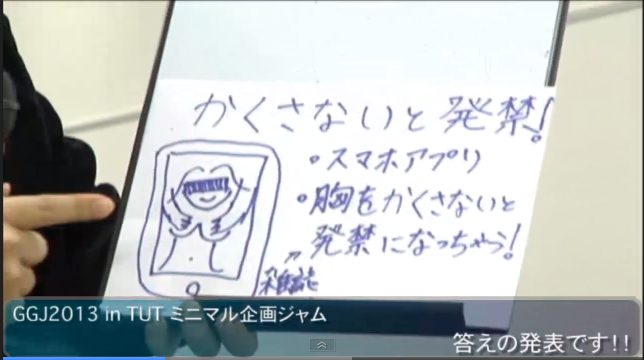 かくさないと発禁!
・スマホアプリ
・胸をかくさないと
発禁になっちゃう!
雑誌
GGJ2013 in TUT ミニマル企画ジャム
答えの発表です!!